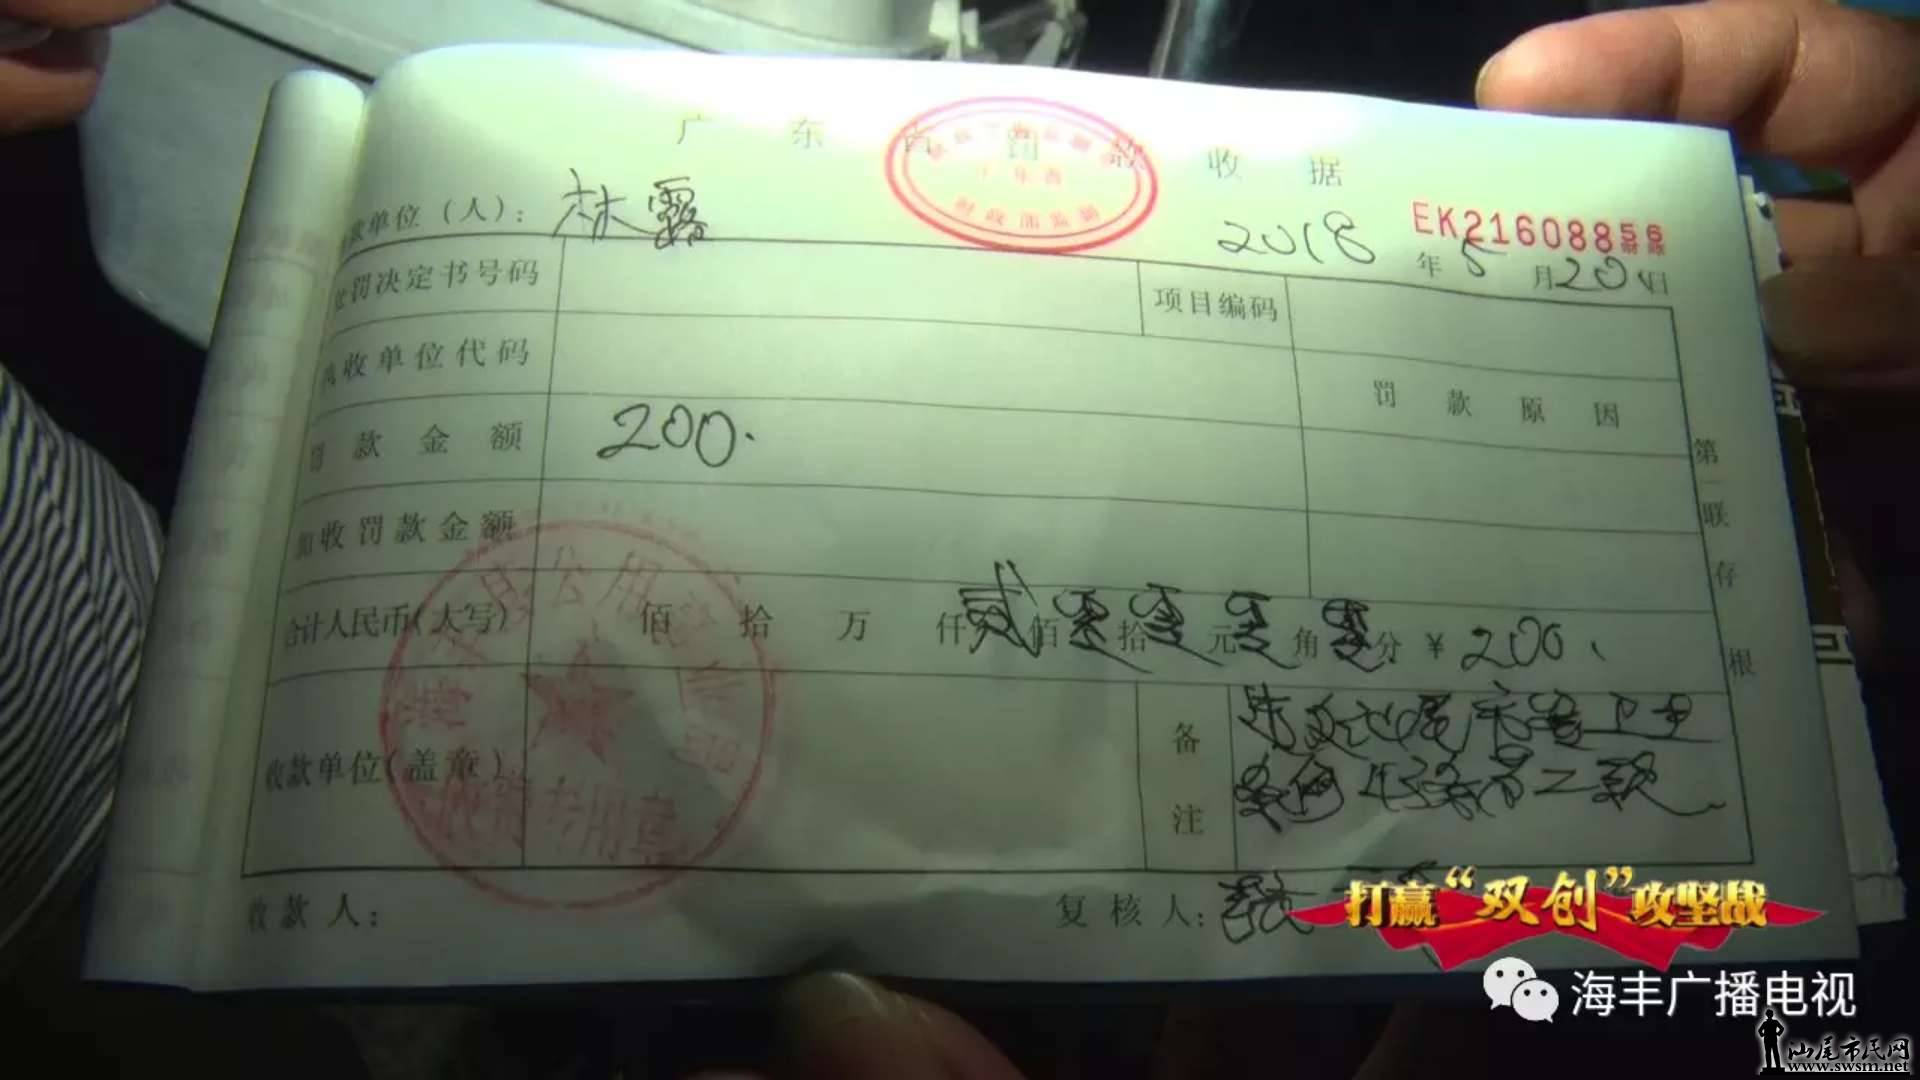 广东省罚款收据
EK21608856
款单位(人): 林露 2018年5月20日
处罚决定书号码 项目编码
执收单位代码 罚款原因
罚款金额 200.
加收罚款金额
合计人民币(大写) 佰 拾 万 仟 贰佰 零拾 零元 零角 零分 ¥ 200.
收款单位(盖章) 备注
收款人: 复核人:
第一联 存根
财政部监制
海丰县公用事业局
专用章
打赢“双创”攻坚战
海丰广播电视
汕尾市民网
www.swsm.net